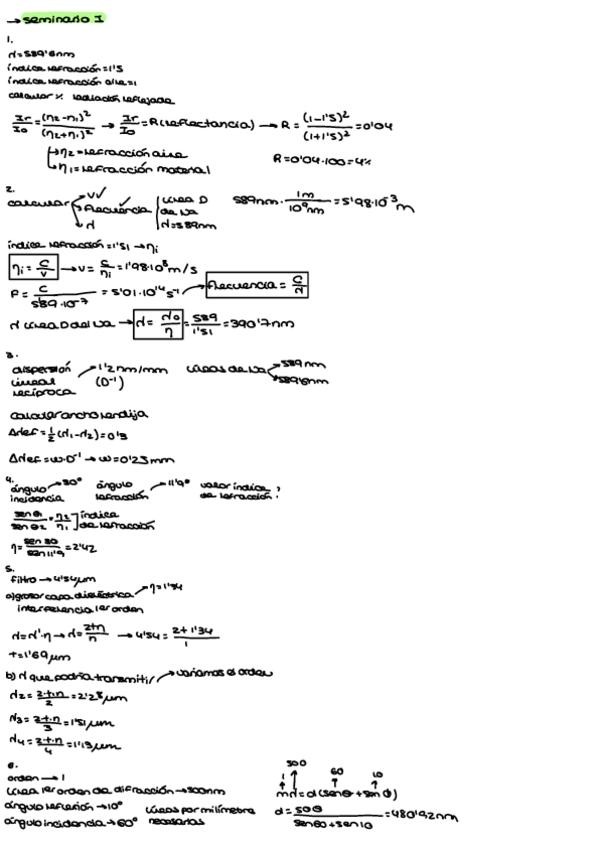 → seminario I
1.
λ=589'6nm
índice refracción=1'5
índice refracción aire=1
calcular % radiación reflejada
Ir/Io = (η2-η1)²/(η2+η1)² → Ir/Io = R (reflectancia) → R = (1-1'5)²/(1+1'5)² = 0'04
η2=refracción aire
η1=refracción material
R=0'04·100=4%
2.
calcular → v ✓
→ frecuencia
→ λ
línea D
de Na
λ=589nm
589nm · 1m/10⁹nm = 5'98·10⁻³m
índice refracción=1'51 → ηi
ηi = c/v → v = c/ηi = 1'98·10⁸ m/s
F = c/589·10⁻⁷ = 5'01·10¹⁴ s⁻¹ → frecuencia = c/λ
λ línea D del Na → λ = λ0/η = 589/1'51 = 390'7nm
3.
dispersión
lineal
recíproca
→ 1'2 nm/mm
(D⁻¹)
líneas de Na → 589nm
→ 589'6nm
calcular ancho rendija
Δλef = 1/2 (λ1-λ2) = 0'3
Δλef = w·D⁻¹ → w = 0'25mm
4.
ángulo
incidencia → 30°
ángulo
refracción → 11'9°
valor índice
de refracción?
sen θ1/sen θ2 = η2/η1 ] índice
de refracción
η = sen 30/sen 11'9 = 2'42
5.
filtro → 4'54 μm
a) grosor capa dieléctrica → η=1'34
interferencia 1er orden
λ=λ'·η → λ = 2tη/n → 4'54 = 2t1'34/1
t=1'69 μm
b) λ que podría transmitir → variamos el orden
λ2 = 2·t·n/2 = 2'28 μm
λ3 = 2·t·n/3 = 1'51 μm
λ4 = 2·t·n/4 = 1'13 μm
6.
orden → 1
línea 1er orden de difracción → 500nm
ángulo reflexión → 10°
ángulo incidencia → 60°
líneas por milímetro
necesarias
500
1 60 10
mλ = d (sen θ + sen θ)
d = 500/sen 60 + sen 10 = 480'92nm